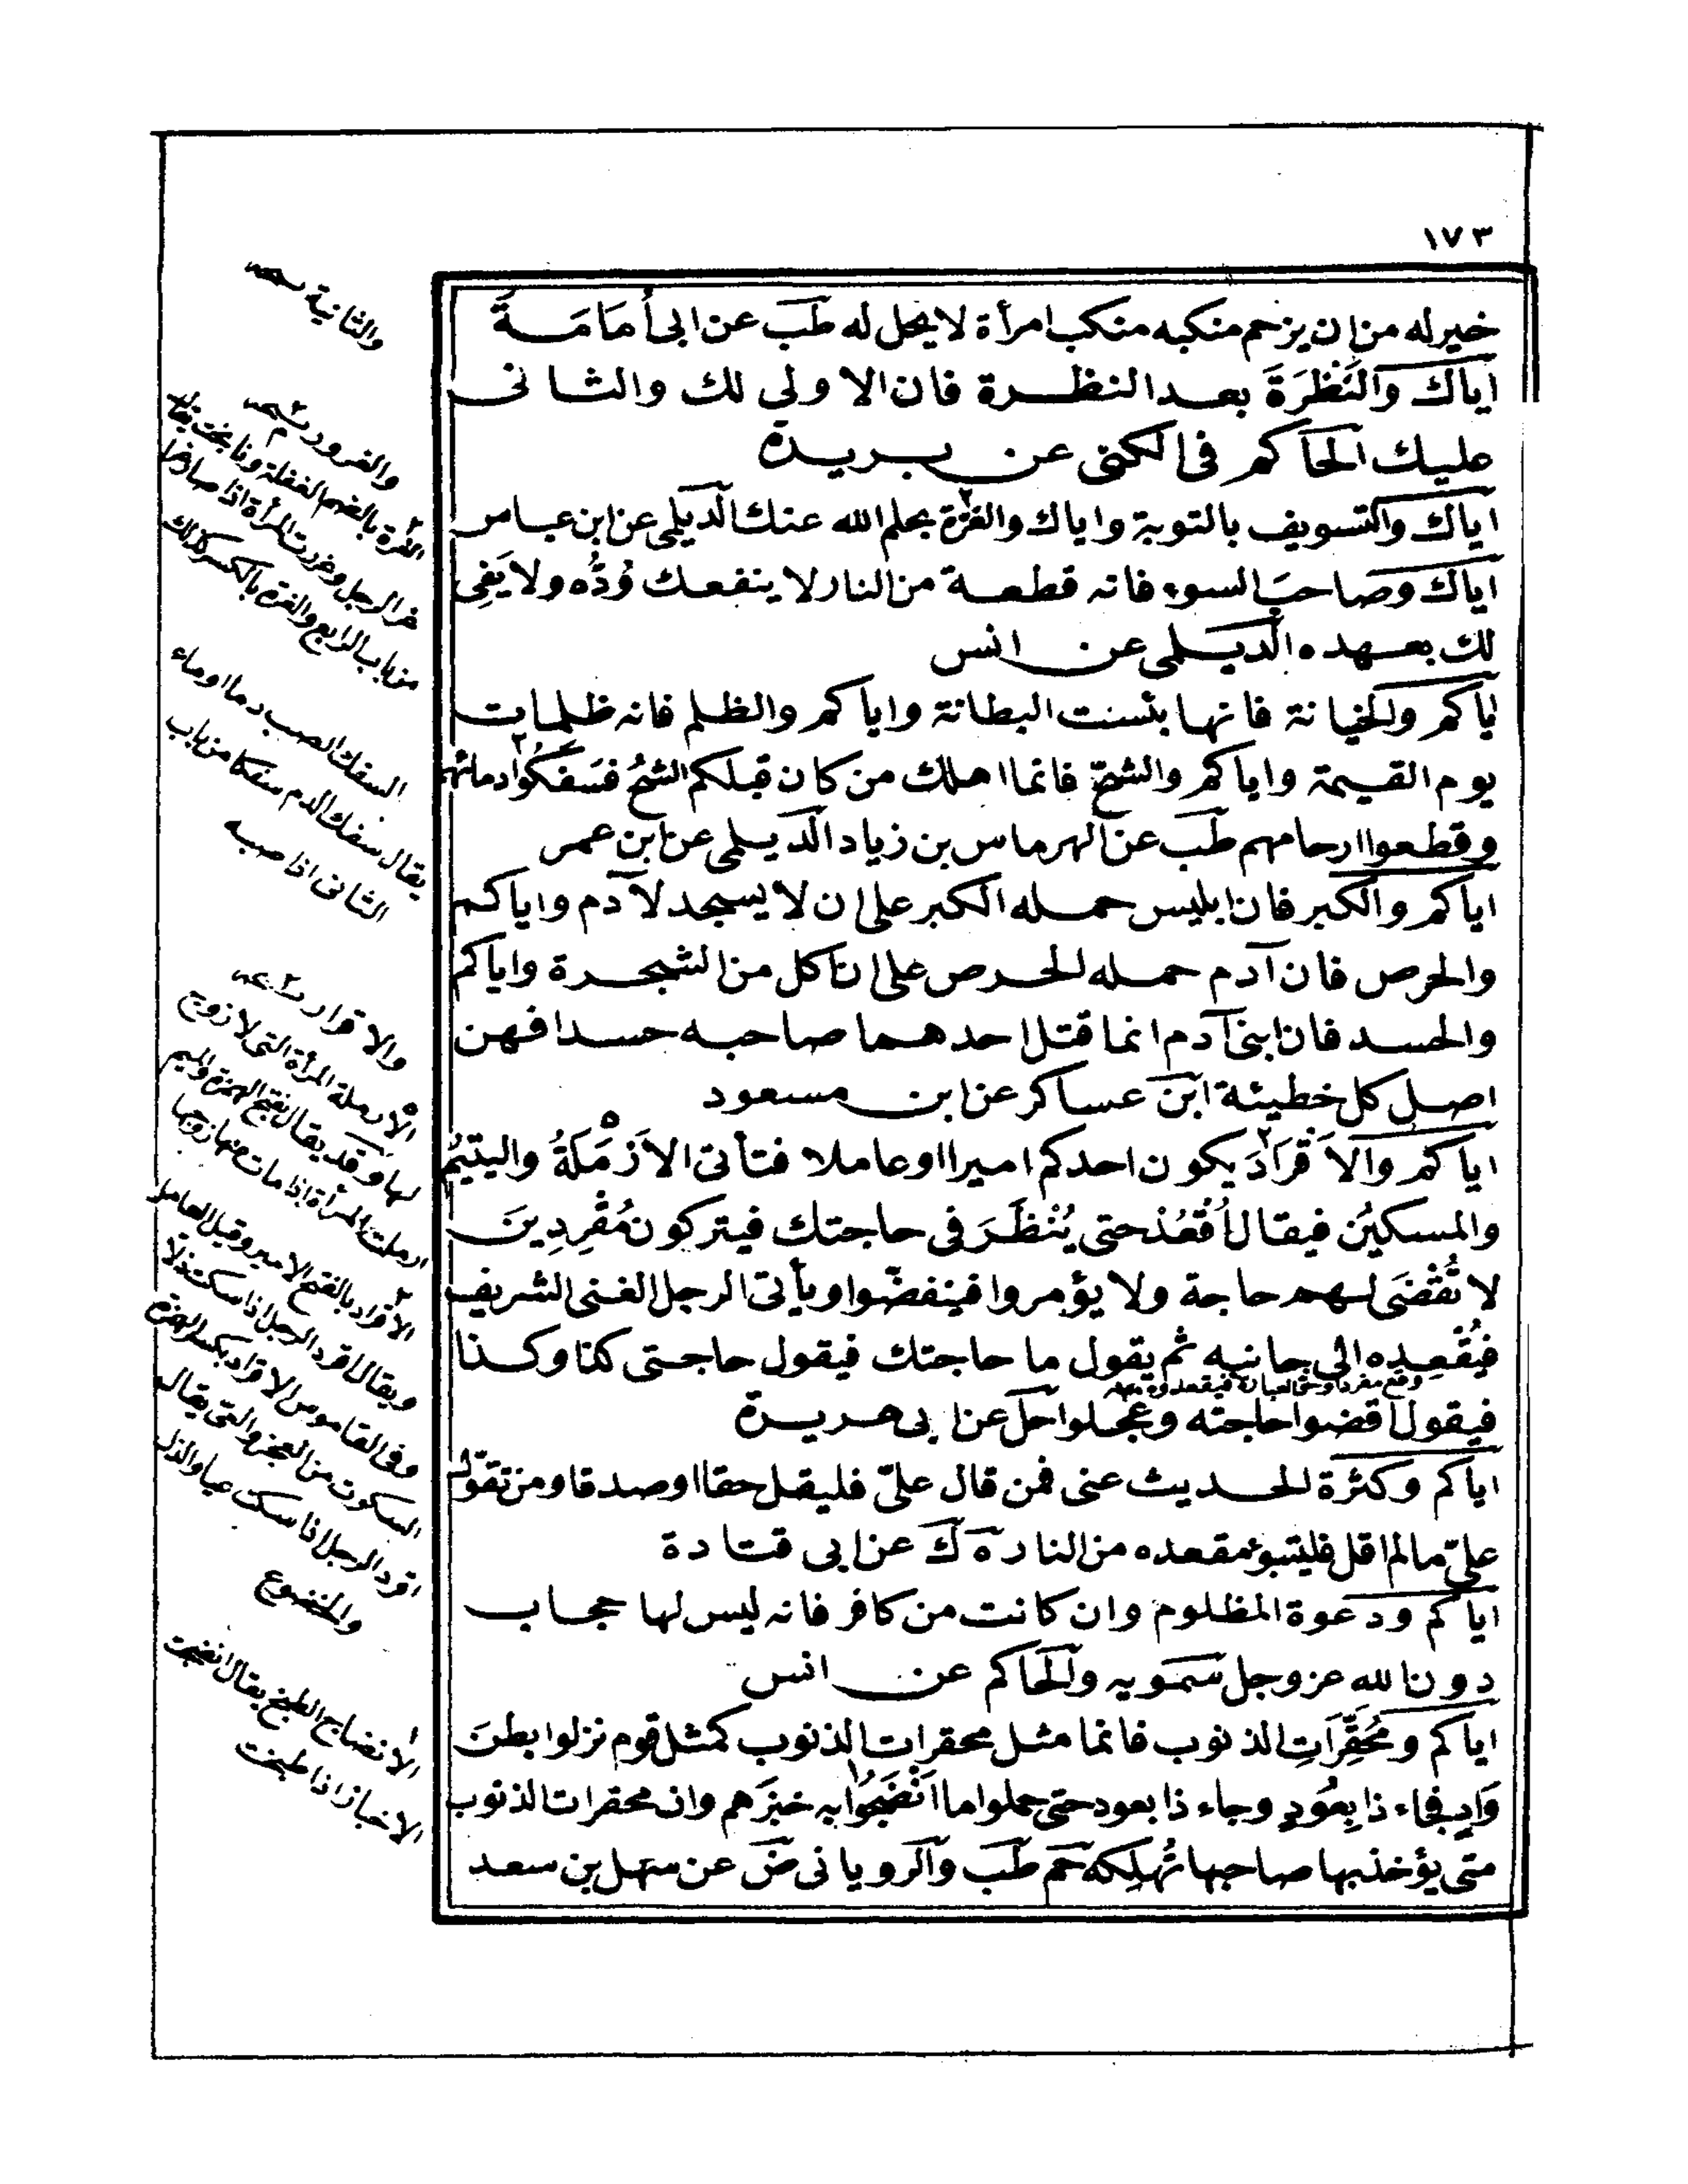 ١٧٣
خيرله من ان يزحم منكبه منكب امرأة لا يحل له طب عن ابى أُمَامَةَ
اياك وَالنَّظْرَةَ بعد النظرة فان الاولي لك والثانى
عليك الحاكم فى الكنى عن بريدة
اياك والتسويف بالتوبة واياك والغرة بحلم الله عنك الديلمى عن ابن عامر
اياك وصاحبَ السوء فانه قطعة من النار لا ينفعك وُدُّه ولا يَفِى
لك بعهده الديلمى عن انس
اياكم والخيانة فانها بئست البطانة واياكم والظلم فانه ظلمات
يوم القيمة واياكم والشحّ فانما اهلك من كان قبلكم الشحُ فسَفكُوا دمائهم
وقطعوا ارحامهم طب عن الهرماس بن زياد الديلمى عن ابن عمر
اياكم والكبر فان ابليس حمله الكبر على ان لا يسجد لآدم واياكم
والحرص فان آدم حمله الحرص على ان تاكل من الشجرة واياكم
والحسد فان ابنى آدم انما قتل احدهما صاحبه حسدا فهن
اصل كل خطيئة ابن عساكر عن ابن مسعود
اياكم والاَقْرَادَ يكون احدكم اميرا او عاملا فتأتى الاَرْمَلَةُ واليتيمُ
والمسكينُ فيقال اُقْعُدْ حتى يُنْظَرَ فى حاجتك فيتركون مُقْرِدِينَ
لا تُقْضَى لهم حاجة ولا يؤمروا فينفضّوا ويأتى الرجل الغنى الشريف
فيُقْعِده الى جانبه ثم يقول ما حاجتك فيقول حاجتى كذا وكذا
فيقول اقضوا حاجته وعجلوا حل عن ابى هريرة
اياكم وكثرة الحديث عنى فمن قال علىّ فليقل حقا او صدقا ومن تقوّل
علىّ ما لم اقل فليتبوء مقعده من النار ه ك عن ابى قتادة
اياكم ودعوة المظلوم وان كانت من كافر فانه ليس لها حجاب
دون الله عز وجل سمويه والحاكم عن انس
اياكم ومُحَقَّرَاتِ الذنوب فانما مثل محقرات الذنوب كمثل قوم نزلوا بطن
وَادٍ فجاء ذا بِعُودٍ وجاء ذا بعود حتى حملوا ما اَنْضَجُوا به خبزَهم وان محقرات الذنوب
متى يؤخذ بها صاحبها تُهلِكه حم طب والرويانى ض عن سهل بن سعد
والثانية
والغرور
الغرة بالضم الغفلة
من باب الرابع والغرة بالكسر كذلك
السفك الصب دما او ماء
يقال سفك الدم سفكا من باب
الثانى اذا صبه
والاقرار
الارملة المرأة التى لا زوج
لها وقد يقال بفتح الهمزة والميم
ارملت المرأة اذا مات عنها زوجها
الاقراد بالفتح الامير وقيل العامل
ويقال اقرد الرجل اذا سكت ذلا
وفى القاموس الاقراد بكسر الهمزة
السكوت من العجز والتى يقال
اقرد الرجل اذا سكت عيا والذل
والخضوع
الانضاج الطبخ يقال انضجت
الاخباز اذا طبخت